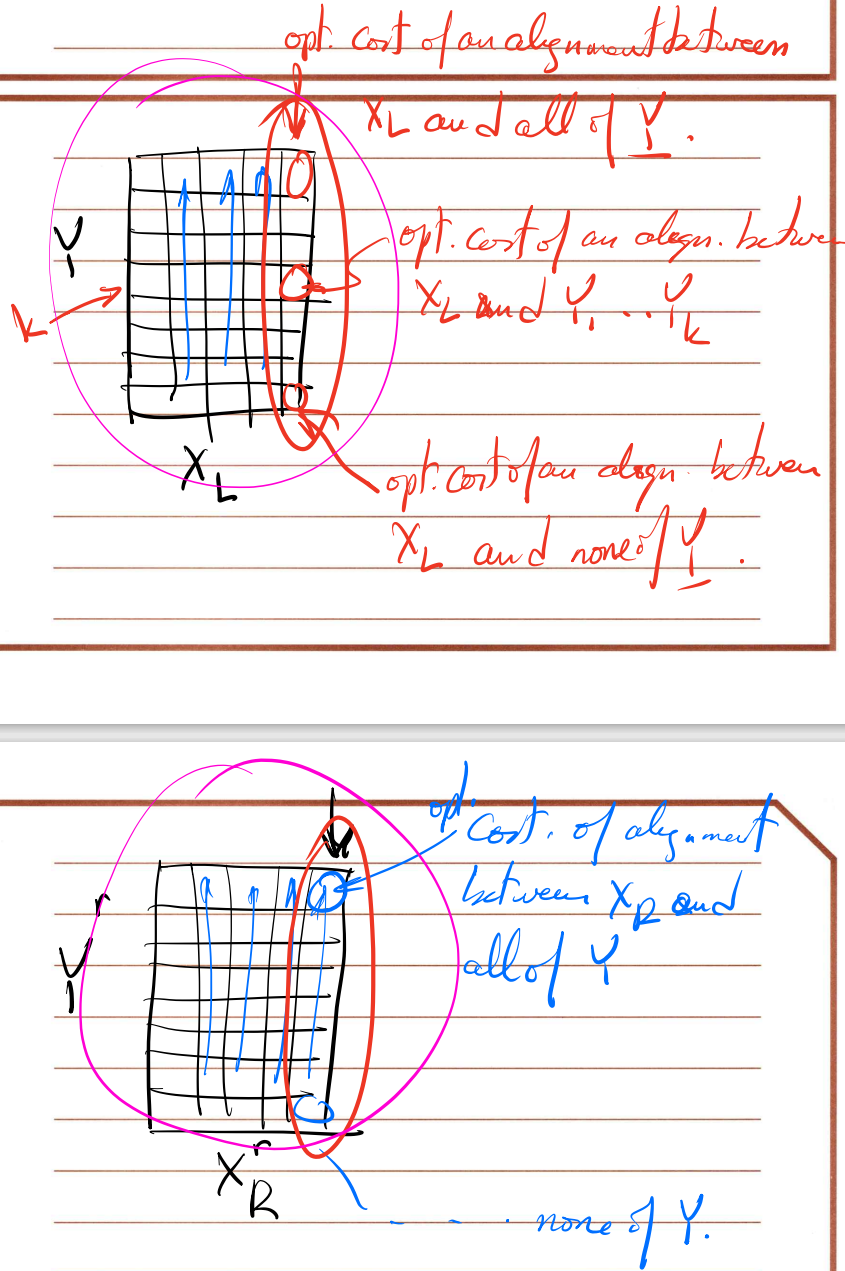 opt. cost of an alignment between
X_L and all of Y.
Y
opt. cost of an align. between
k
X_L and Y₁ ... Y_k
X_L
opt. cost of an align. between
X_L and none of Y.
opt.
cost. of alignment
between X_R and
Y^r
all of Y
X_R^r
- - . none of Y.